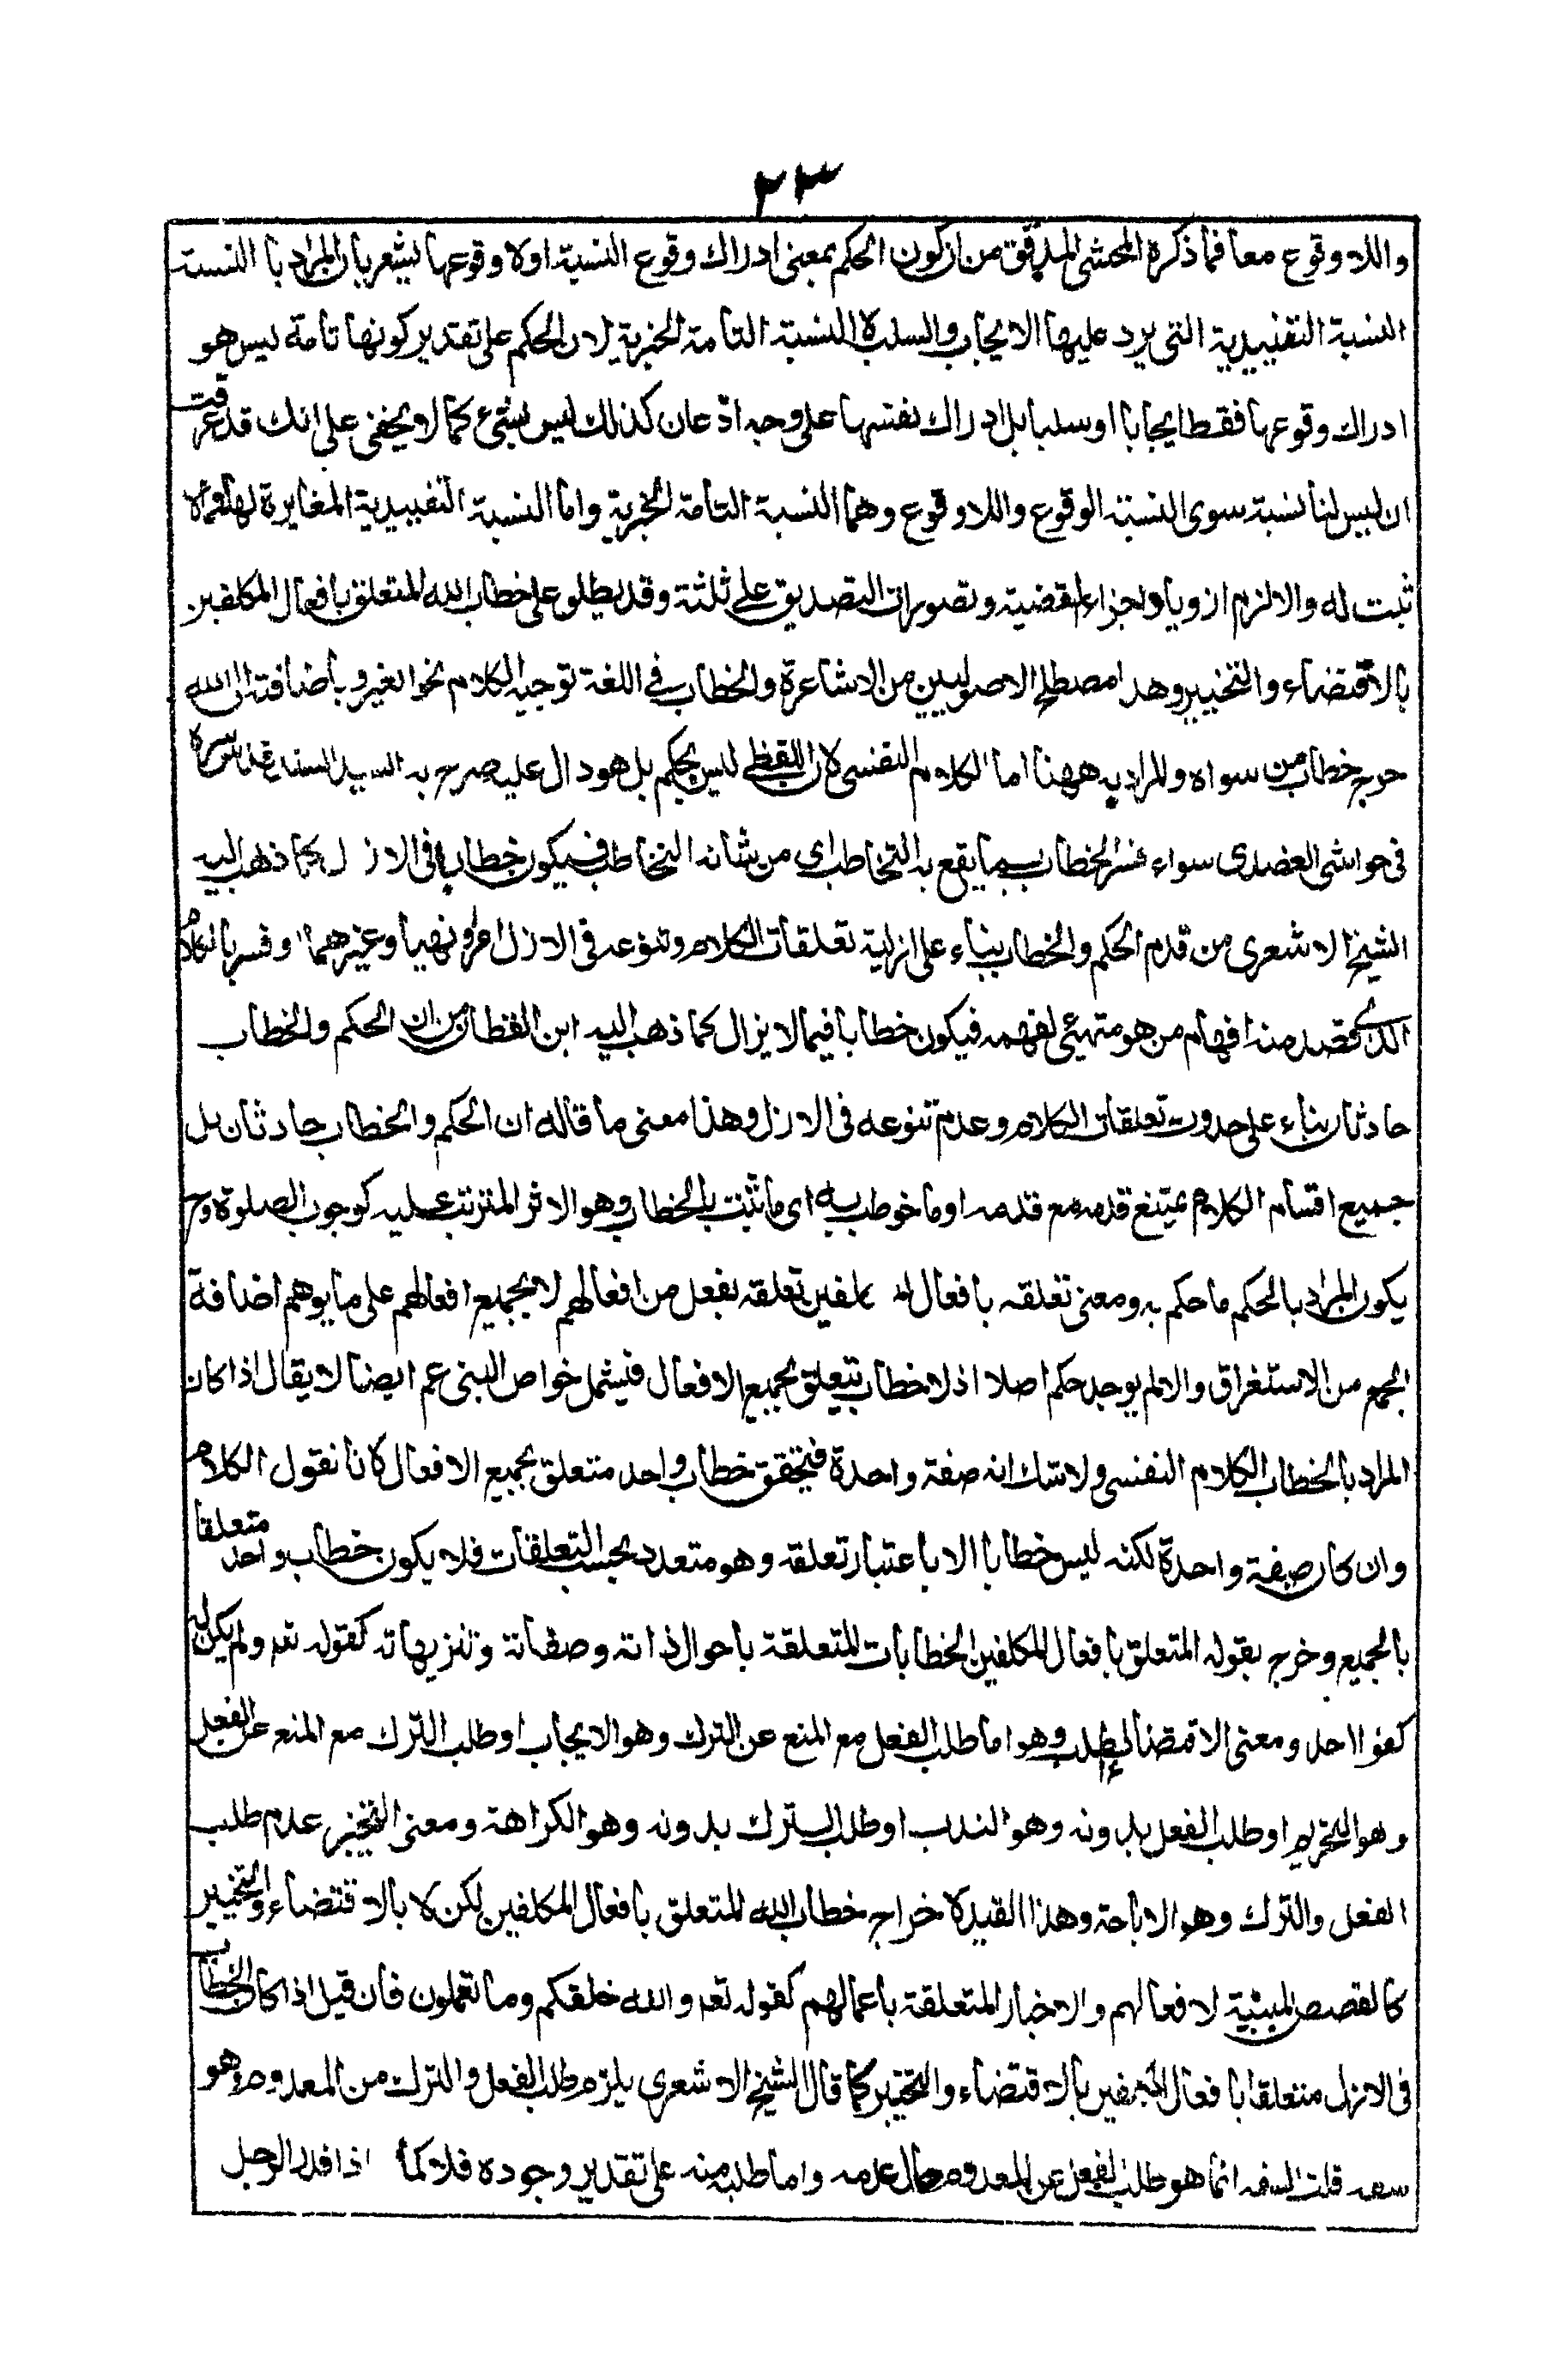 ٢٣
واللا وقوع معا فما ذكره المحشي المدقق من ان كون الحكم بمعنى ادراك وقوع النسبة اولا وقوعها يشعر بان المراد با النسبة
النسبة التقييدية التي يرد عليها الايجاب والسلب لا النسبة التامة الخبرية لان الحكم على تقدير كونها تامة ليس هو
ادراك وقوعها فقط ايجابا او سلبا بل ادراك نفسها على وجه اذعان كذلك ليس بشيء كما لا يخفى على انك قد عرفت
ان ليس لنا نسبة سوى النسبة الوقوع واللاوقوع وهما النسبة التامة الخبرية واما النسبة التقييدية المغايرة لها فمالا
ثبت له والا لزم ازدياد اجزاء القضية وتصورات التصديق على ثلثة وقد يطلق على خطاب الله المتعلق بافعال المكلفين
بالاقتضاء والتخيير وهذا مصطلح الاصوليين من الاشاعرة والخطاب في اللغة توجيه الكلام نحو الغير وباضافته الى الله
خرج خطاب من سواه والمراد به ههنا اما الكلام النفسي لان اللفظي ليس بحكم بل هو دال عليه صرح به السيد السند قدس سره
في حواشي العضدى سواء فسر الخطاب بما يقع به التخاطب اى من شانه التخاطب فيكون خطابا في الازل كما ذهب اليه
الشيخ الاشعري من قدم الحكم والخطاب بناء على ازلية تعلقات الكلام وتنوعه في الازل امرا ونهيا وغيرهما او فسر بالكلام
الذي قصد منه افهام من هو متهيئ لفهمه فيكون خطابا فيما لا يزال كما ذهب اليه ابن القطان من ان الحكم والخطاب
حادثان بناء على حدوث تعلقات الكلام وعدم تنوعه في الازل وهذا معنى ما قاله ان الحكم والخطاب حادثان بل
جميع اقسام الكلام يمتنع قدمه مع قدمه او ما خوطب به اى ما ثبت بالخطاب وهو الاثر المترتب عليه كوجوب الصلوة وح
يكون المراد بالحكم ما حكم به ومعنى تعلقه بافعال المكلفين تعلقه بفعل من افعالهم لا بجميع افعالهم على ما يوهم اضافة
الجمع من الاستغراق والا لم يوجد حكم اصلا اذ لا خطاب يتعلق بجميع الافعال فيشمل خواص النبي عم ايضا لا يقال اذا كان
المراد بالخطاب الكلام النفسي ولا شك انه صفة واحدة فيتحقق خطاب واحد متعلق بجميع الافعال كانا نقول الكلام
وان كان صفة واحدة لكنه ليس خطابا الا باعتبار تعلقه وهو متعدد بحسب التعلقات فلا يكون خطاب واحد متعلقا
بالجميع وخرج بقوله المتعلق بافعال المكلفين الخطابات المتعلقة باحوال ذاته وصفاته وتنزيهاته كقوله تعم ولم يكن له
كفوا احد ومعنى الاقتضاء الطلب وهو اما طلب الفعل مع المنع عن الترك وهو الايجاب او طلب الترك مع المنع عن الفعل
وهو التحريم او طلب الفعل بدونه وهو الندب او طلب الترك بدونه وهو الكراهة ومعنى التخيير عدم طلب
الفعل والترك وهو الاباحة وهذا القيد لاخراج خطاب الله المتعلق بافعال المكلفين لكن لا بالاقتضاء والتخيير
كالقصص المبينة لافعالهم والاخبار المتعلقة باعمالهم كقوله تعم والله خلقكم وما تعملون فان قيل اذا كان الخطاب
في الازل متعلقا بافعال المكلفين بالاقتضاء والتخيير كما قال الشيخ الاشعري يلزم طلب الفعل والترك من المعدوم وهو
سفه قلت السفه انما هو طلب الفعل عن المعدوم حال عدمه واما طلبه منه على تقدير وجوده فلا كما اذا قدر الرجل